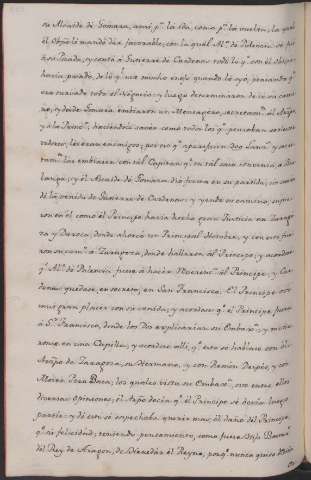 su Alcaide de Gomara, ansi pᵃ la ida, como pᵃ la vuelta; la qual
el Obpo le mandó dar favorable; con la qual Alº de Palencia se fue
á su Posada, y contó á Gutierre de Cardenas todo lo qᵉ con el Obispo
havia pasado, de lo qᵉ huvo mucho enojo quando lo oyó, pensando qᵉ
era errado todo el Negocio: y luego determinaron de ir su cami-
no, y desde Gomara embiaron un Mensagero secretamᵗᵉ al Arzpo
y á la Princᵃ, haciendole saver como todos los qᵉ pensaban ser sus ser-
vidores, les eran enemigos: por eso qᵉ aparejasen 300 Lanzˢ y secre-
tamᵗᵉ las embiasen con tal Capitan qᵉ en tal caso convenia á Bur-
tanga; y el Alcaide de Gomara dio fuerza en su partida, sin saver
de la venida de Gutierre de Cardenas: y yendo su camino, supie-
ron en el como el Principe havia hecho gran Justicia en Zarago-
za y Daroca; donde ahorcó un Principal Hombre, y con esto fue-
ron su camᵒ á Zaragoza, donde hallaron al Principe; y acordose
qᵉ Alº de Palencia fuese á hacer Reverenᵃ al Principe, y Car-
denas quedase, en secreto, en San Francisco. El Principe ovo
muy gran placer con su venida; y acordose qᵉ el Principe fuese
á Sⁿ Francisco, donde los Dos explicarian su Embaxᵃ, y metie-
ronse en una Capilla; y acordose alli, qᵉ esto se hablase con el
Arzpo de Zaragoza, su Hermano, y con Ramon Despés, y con
Mosen Pero Baca; los quales vista su Embaxᵃ, ovo entre ellos
diversas Opiniones; el Arzpo decia qᵉ el Principe se devia luego
partir: y de esto se sospechaba querer mas el daño del Principe
qᵉ su felicidad; teniendo pensamiento, como fuese Hijo Bastardo
del Rey de Aragon, de heredar el Reyno, porqᵉ nunca quiso